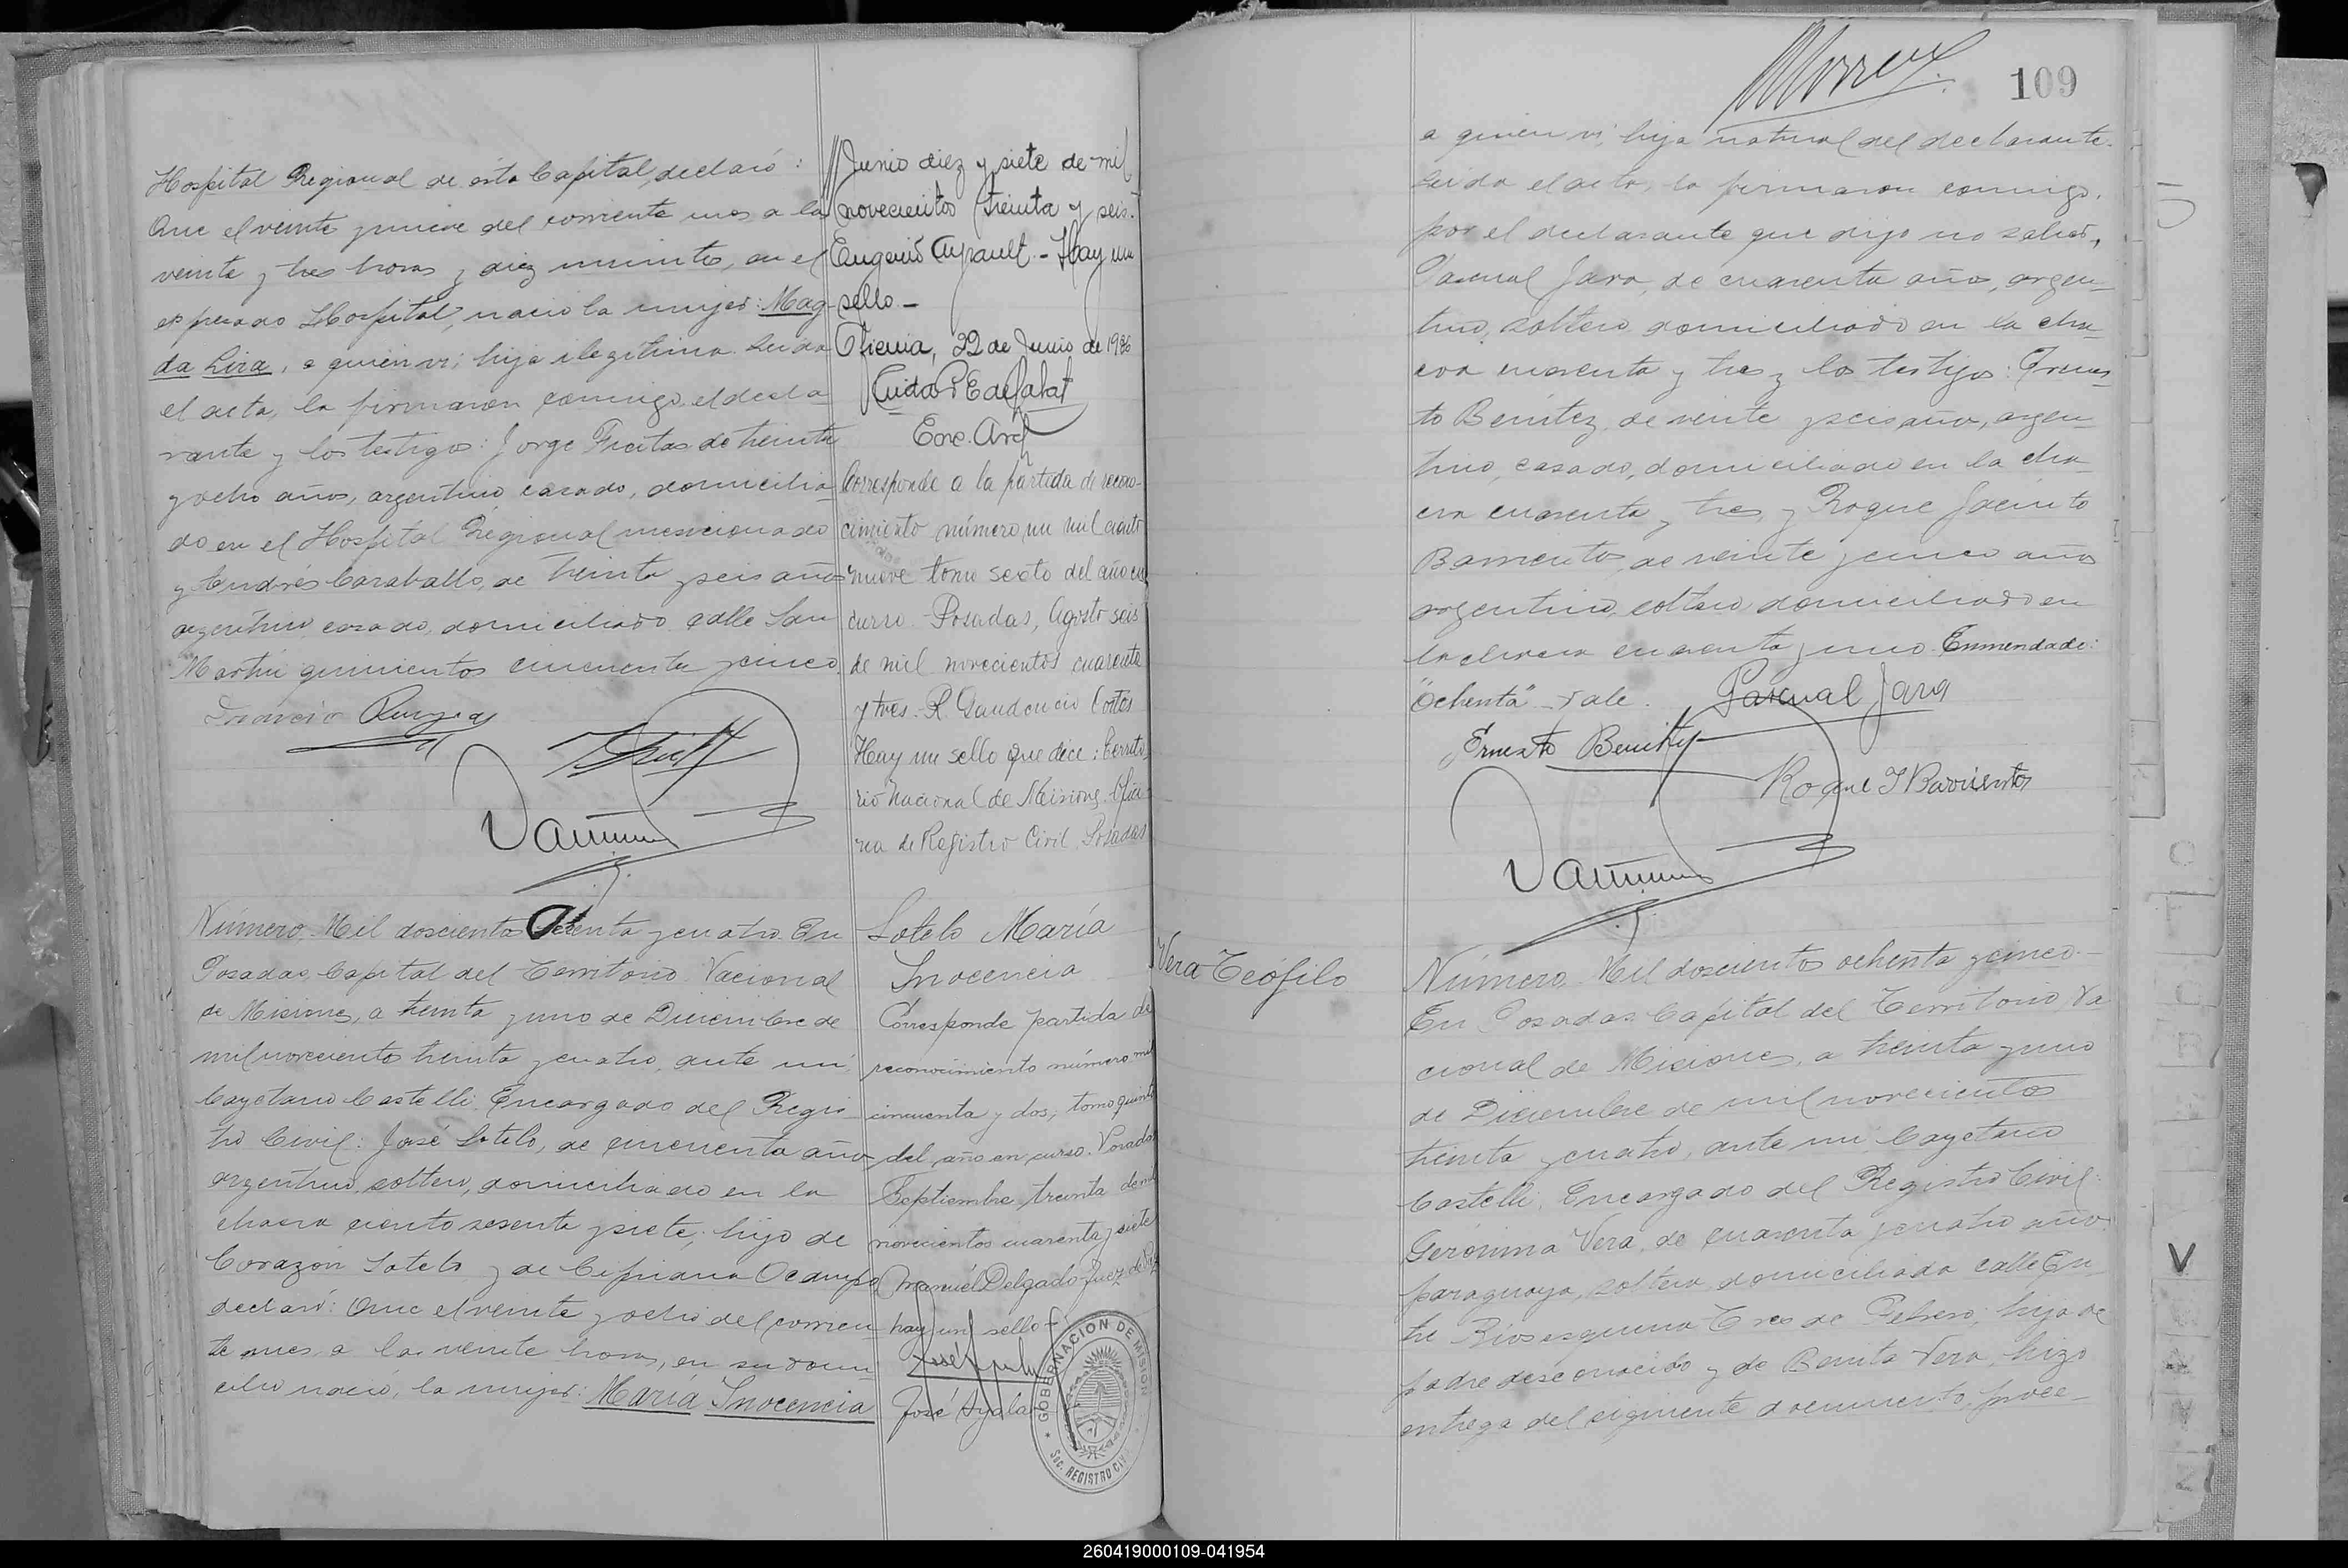 Hospital Regional de ésta Capital, declaró:
Que el veinte y nueve del corriente mes a las
veinte y tres horas y diez minutos, en el
expresado Hospital, nació la mujer: Mag-
da Lira, a quien vi; hija ilegítima. Leida
el acta, la firmaron conmigo, el decla-
rante y los testigos: Jorge Freitas de treinta
y ocho años, argentino casado, domicilia-
do en el Hospital Regional mencionado
y Andrés Caraballo, de treinta y seis años
argentino, casado, domiciliado calle San
Martín quinientos cincuenta y cinco.
Junio diez y siete de mil
novecientos treinta y seis.-
Eugenio - Hay un
sello -
Oficina, 22 de Junio de 1936
Enc. Arch
Corresponde a la partida de recono-
cimiento número un mil ciento
nueve tomo sexto del año en
curso - Posadas, Agosto seis
de mil novecientos cuarenta
y tres - R. Gaudencio Cortés
Hay un sello que dice: Territo-
rio Nacional de Misiones. Ofici-
na de Registro Civil. Posadas
Número Mil doscientos Ochenta y cuatro. En
Posadas, Capital del Territorio Nacional
de Misiones, a treinta y uno de Diciembre de
mil novecientos treinta y cuatro, ante mí,
Cayetano Castelli. Encargado del Regis-
tro Civil: José Sotelo, de cincuenta años
argentino, soltero, domiciliado en la
chacra ciento sesenta y siete, hijo de
Corazón Sotelo y de Cipriana Ocampo,
declaró: Que el veinte y ocho del corrien-
te mes, a las veinte horas, en su domi-
cilio nació, la mujer: María Inocencia
Sotelo María
Inocencia
Corresponde partida de
reconocimiento número mil
cincuenta y dos, tomo quinto
del año en curso. Posadas
Septiembre treinta de mil
novecientos cuarenta y siete
Manuel Delgado Juez de Paz
hay un sello -
José Ayala
GOBERNACION DE MISIONES
SEC. REGISTRO CIVIL
109
a quien vi; hija natural del declarante.
Leida el acta, la firmaron conmigo,
por el declarante que dijo no saber,
Pascual Jara, de cuarenta años, argen-
tino, soltero, domiciliado en la cha-
cra cuarenta y tres y los testigos: Ernes-
to Benítez, de veinte y seis años, argen-
tino, casado, domiciliado en la cha-
cra cuarenta y tres, y Roque Jacinto
Barrientos, de veinte y cinco años
argentino, soltero domiciliado en
la chacra cuarenta y uno. Enmendado:
"Ochenta" - Vale.
Pascual Jara
Ernesto Benitez
Roque J Barrientos
Vera Teófilo
Número Mil doscientos ochenta y cinco.-
En Posadas Capital del Territorio Na-
cional de Misiones, a treinta y uno
de Diciembre de mil novecientos
treinta y cuatro, ante mí Cayetano
Castelli, Encargado del Registro Civil:
Gerónima Vera, de cuarenta y cuatro años
paraguaya, soltera, domiciliada calle En-
tre Rios esquina Tres de Febrero, hija de
padre desconocido y de Benita Vera, hizo
entrega del siguiente documento, proce-
V
260419000109-041954